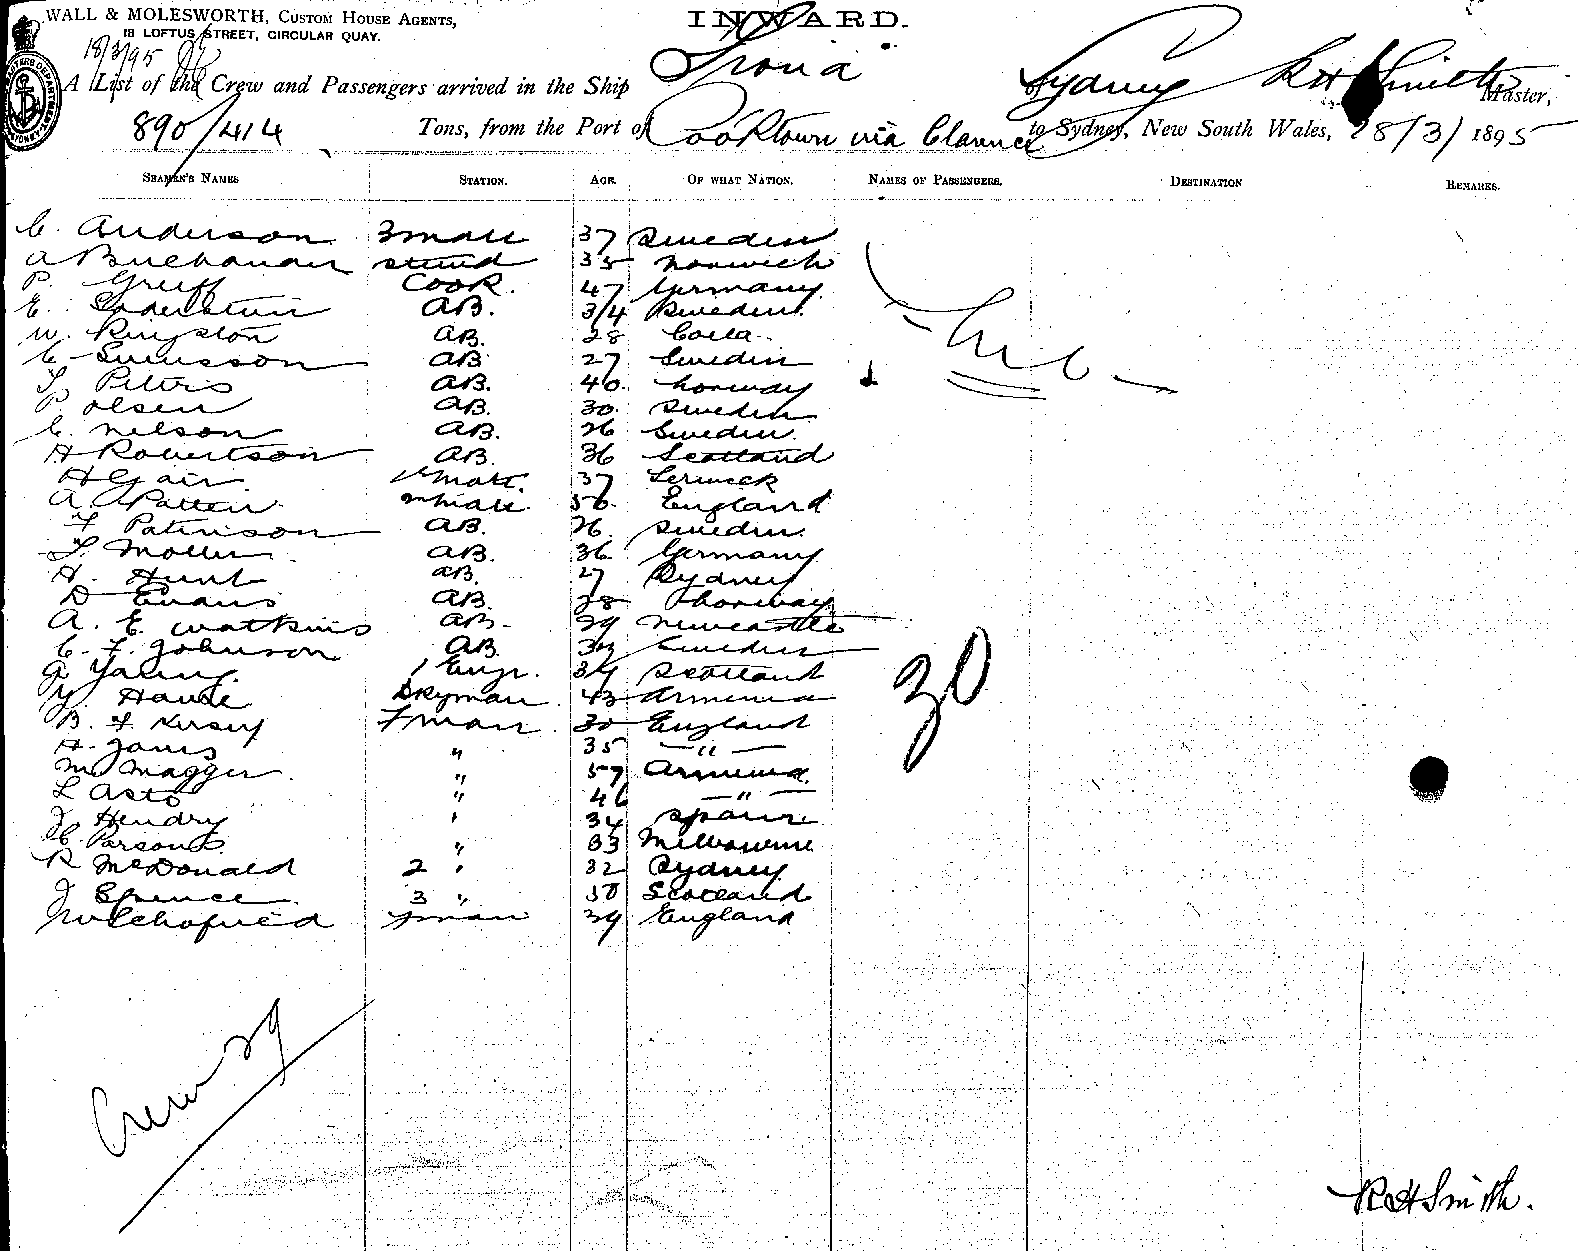 WALL & MOLESWORTH, CUSTOM HOUSE AGENTS,
18 LOFTUS STREET, CIRCULAR QUAY.
INWARD.
18/3/95
A List of the Crew and Passengers arrived in the Ship Sydney R H Smith Master,
890/414 Tons, from the Port of Cooktown via Clarence to Sydney, New South Wales, 28/3/1895
SEAMEN'S NAMES STATION. AGE. OF WHAT NATION. NAMES OF PASSENGERS. DESTINATION REMARKS.
C. Anderson 3 mate 37 Sweden
A Buchanan stwd 35 Norwich
P. Greiff Cook. 47 Germany
E. AB. 34 Sweden
W. Ringston AB. 28
C. Svensson AB 27 Sweden
Peters AB. 40. Norway
P. Olsen AB. 30. Sweden
C. Nelson AB. 26 Sweden
A Robertson AB. 36 Scotland
A Gair 1st Mate. 37 Lerwick
A. Patten 2nd mate. 50. England
F Patterson AB. 26. Sweden
Moller AB. 36 Germany
H. Hunt AB. 27 Sydney
D Evans AB. 28 Norway
A. E. Watkins AB. 29 Newcastle
C. F. Johnson AB. Sweden
G Young. 1 Engr. 39 Scotland
Dkyman 43 Armenia
B. F. Kersey Fman 30 England
H. Janis " 35 — " —
M. Magger " 57 Armenia
L Asto " 46 — " —
J. Hendry " 34 Spain
C. Parsons " 33 Melbourne
R McDonald 2 " 32 Sydney
J Spence 3 " 50 Scotland
Schofield Fman 39 England
30
Crew 39
R H Smith.